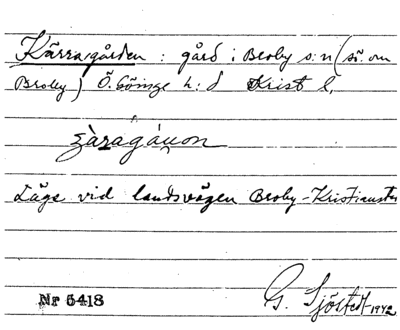 Kärragården : gård i Broby s:n (sö. om
Broby) Ö. Göinge h:d Krist l.
Låge vid landsvägen Broby-Kristiansta
Nr 5418 G. Sjöstedt 1942